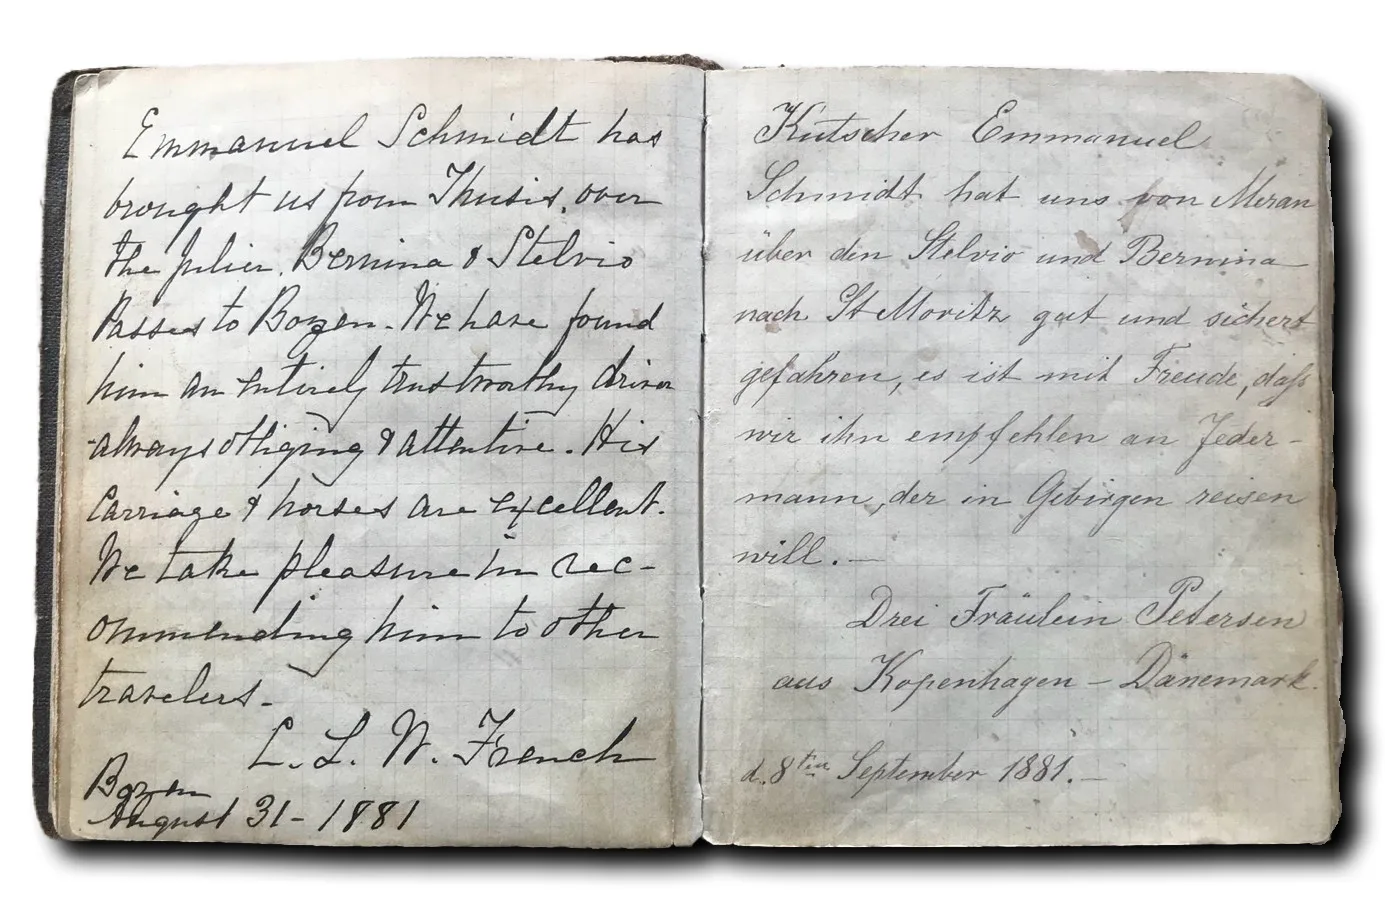 Emmanuel Schmidt has
brought us from Thusis, over
the Julier, Bernina & Stelvio
Passes to Bozen. We have found
him an entirely trustworthy driver
always obliging & attentive. His
carriage & horses are excellent.
We take pleasure in rec-
ommending him to other
travelers.
L. L. W. French
Bozen
August 31 - 1881
Kutscher Emmanuel
Schmidt hat uns von Meran
über den Stelvio und Bernina
nach St Moritz gut und sichert
gefahren, es ist mit Freude, daß
wir ihn empfehlen an Jeder-
mann, der in Gebirgen reisen
will. —
Drei Fräulein Petersen
aus Kopenhagen – Dänemark.
d. 8ten September 1881. —